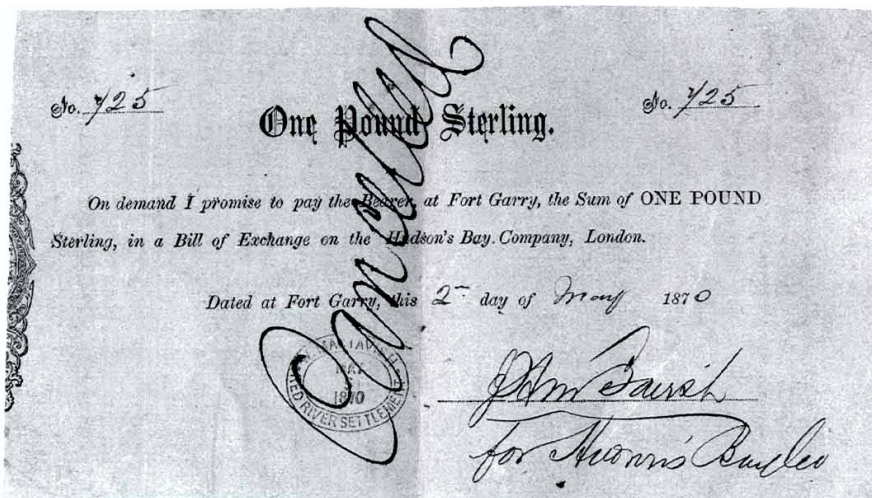 No. 725 No. 725
One Pound Sterling.
On demand I promise to pay the Bearer, at Fort Garry, the Sum of ONE POUND
Sterling, in a Bill of Exchange on the Hudson's Bay Company, London.
Dated at Fort Garry, this 2 day of May 1870
Cancelled
MAY
1870
RED RIVER SETTLEMENT
for